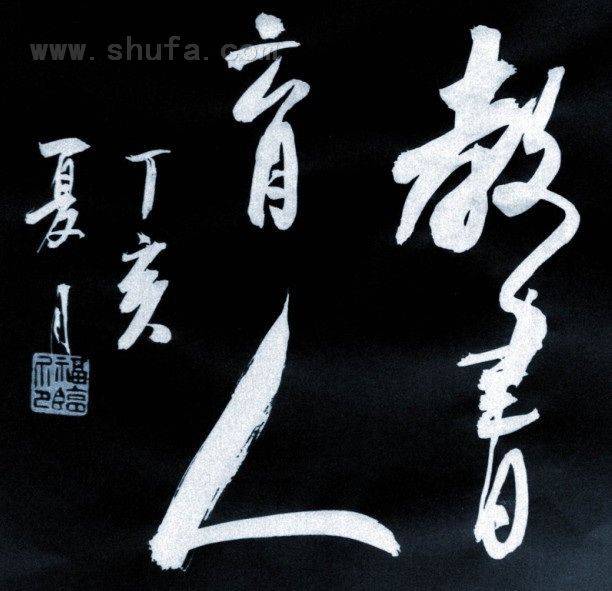 教書
育人
丁亥
夏月
www.shufa.com